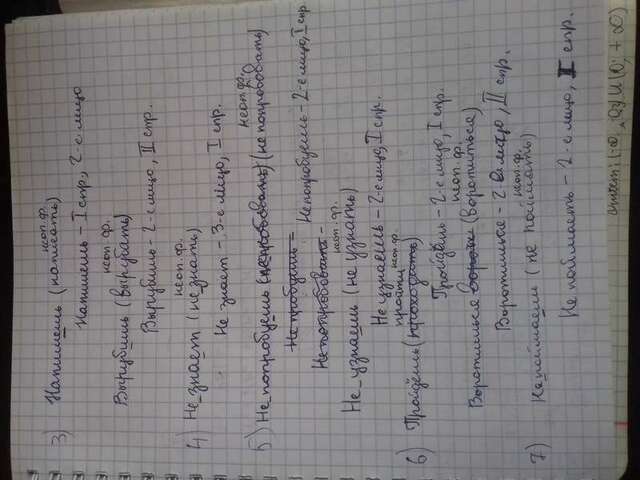 неоп.ф.
3) Напишешь (написать)
Напишешь - I спр., 2-е лицо
неоп.ф.
Вырубишь (вырубать)
Вырубишь - 2-е лицо, II спр.
неоп.ф.
4) Не знает (не знать)
Не знает - 3-е лицо, I спр.
неоп.ф.
5) Не попробуешь (непробовать) (не попробовать)
Не пробуешь -
Непопробуешь - 2-е лицо, I спр
Непопробовать -
неоп.ф.
Не узнаешь (не узнать)
Не узнаешь - 2-е лицо, I спр.
пройти неоп.ф.
6) Пройдёшь (проходать)
Пройдёшь - 2-е лицо, I спр.
неоп.ф.
Воротишься (воротиться)
Воротишься - 2-е лицо, II спр.
неоп.ф.
7) Не поймаешь (не поймать)
Не поймаешь - 2-е лицо, I спр.
Ответ: (-∞; U (0; +∞)